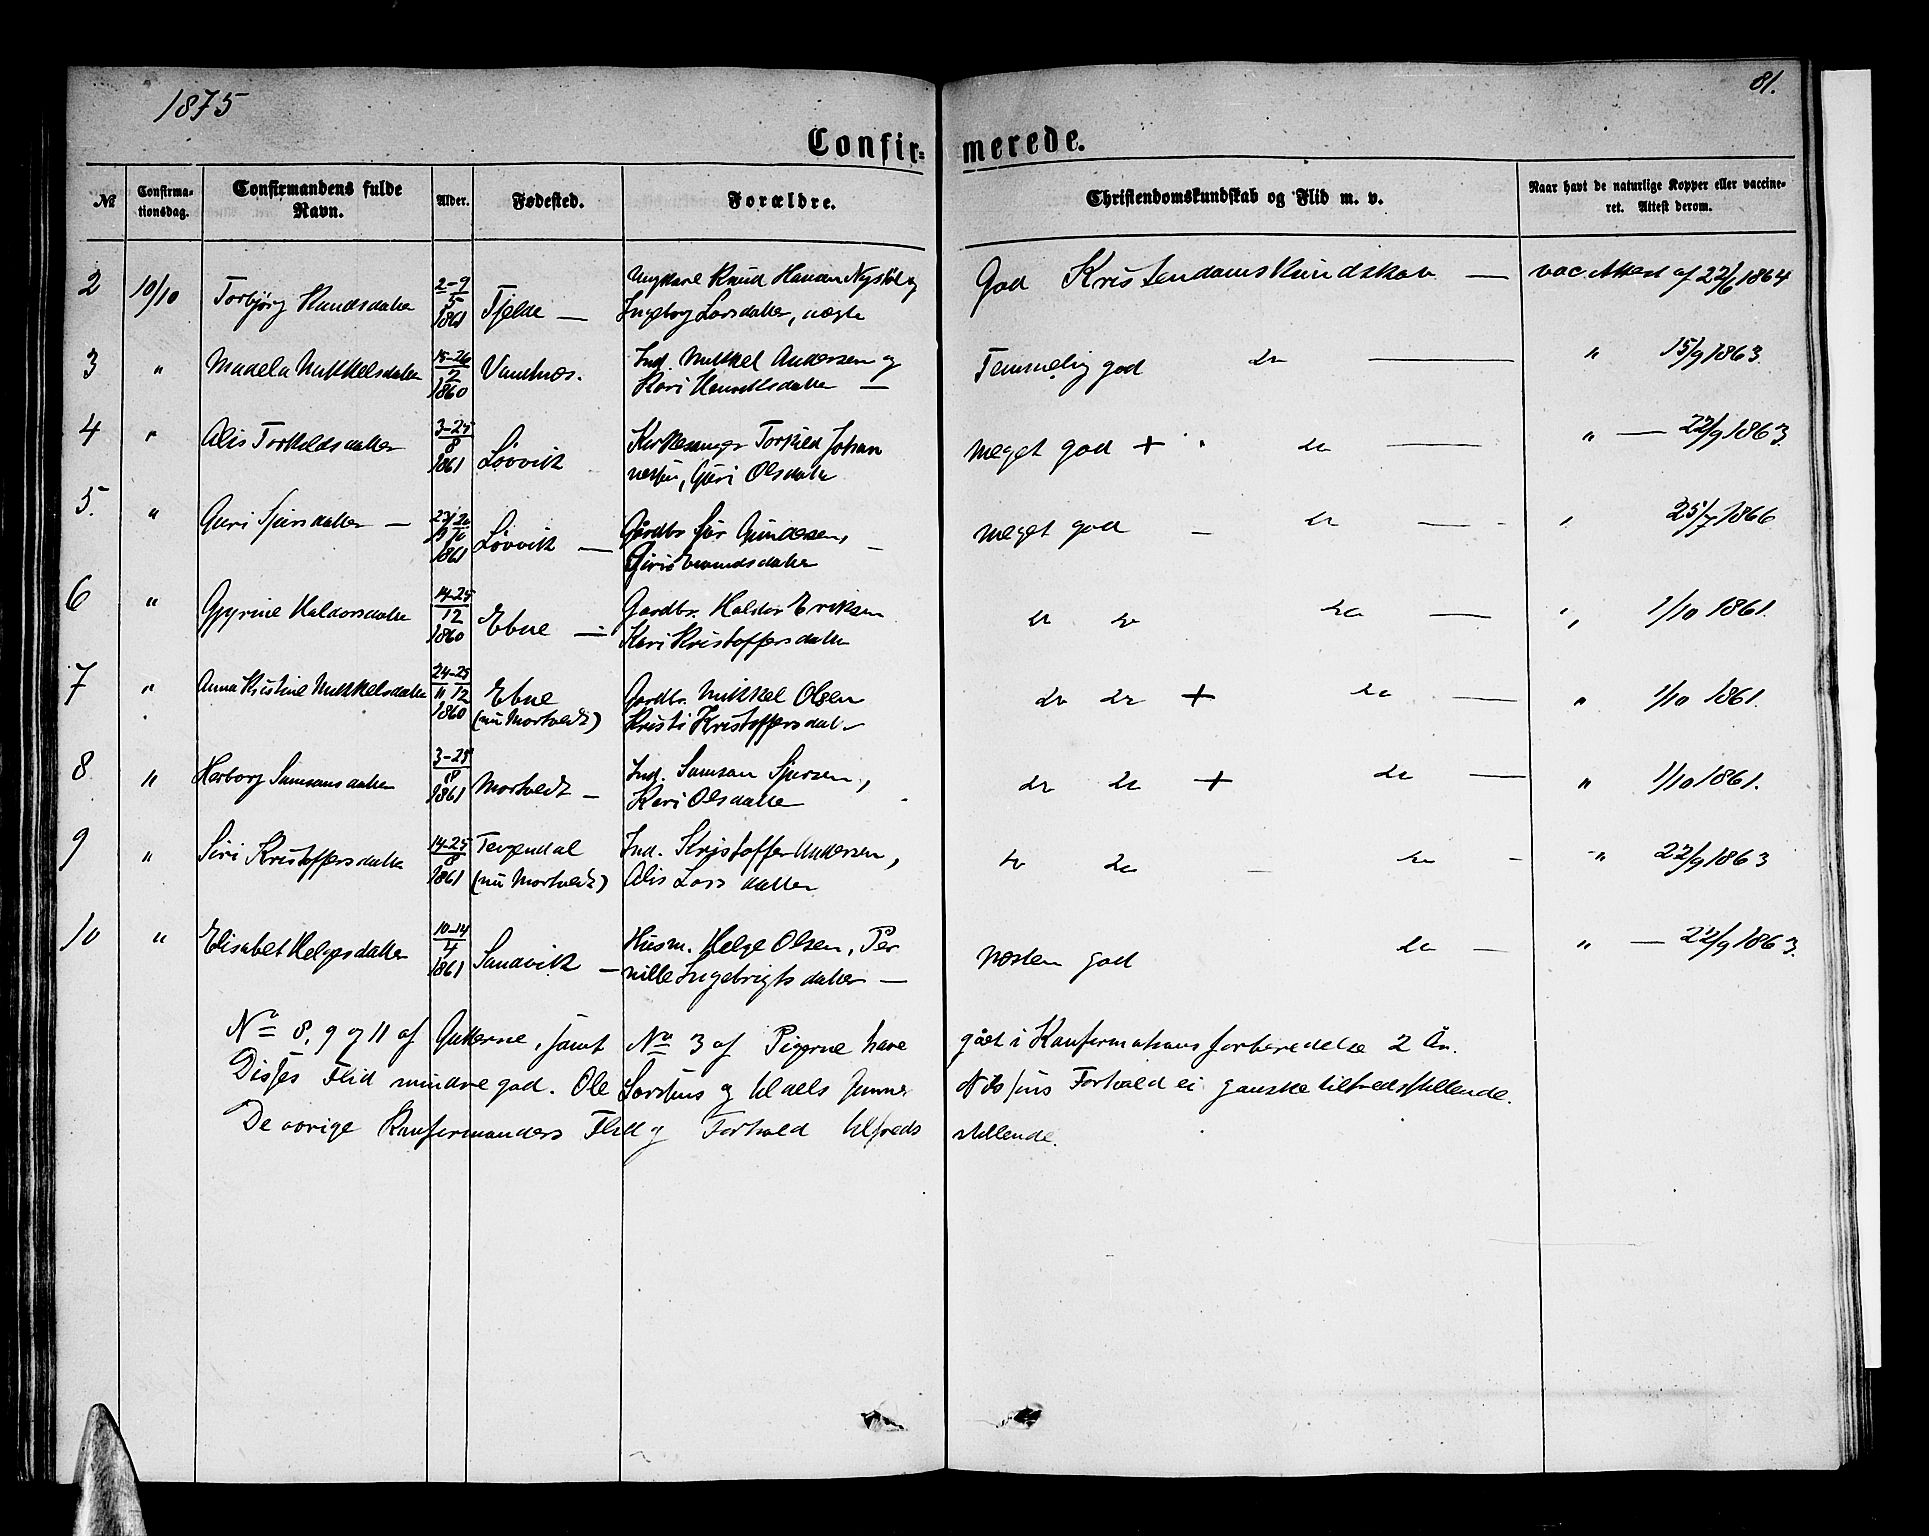 1875
81.
Confir= merede.
№
Confirma-
tionsdag.
Confirmandens fulde
Navn.
Alder.
Fødested.
Forældre.
Christendomskundskab og Flid m. v.
Naar havt de naturlige Kopper eller vaccine-
ret. Attest derom.
2 10/10 Torbjørg Knudsdatter 2-9/5 1861 Fjelde — Ungkarl Knud Hansen Nystøl og
Ingeborg Larsdatter, uægte
God Kristendomskundskab — vac. Attest af 22/6 1864
3 " Madela Mikkelsdatter 15-26/2 1860 Ind. Mikkel Andersen og
Kari
Temmelig god do — " 15/9 1863.
4 " Alis Torkildsdatter 3-25/8 1861 Løvvik Kirkesanger Torkild Johan
nessen, Guri Olsdatter
meget god + " do — " — 22/9 1863.
5. " Guri Sjursdatter — 1861 Løvvik — Gårdbr. Sjur
meget god — do — " 25/7 1866
6 " Gyrine Haldorsdatter 14-25/12 1860 Ebne — Gardbr. Haldor Eriksen
Kari Kristoffersdatter
do do do — " 1/10 1861.
7 " Anna Kristine Mikkelsdatter 24-25/11 12 1860 Ebne
(nu Mortvedt) Gardbr. Mikkel Olsen
Kristi Kristoffersdatt.
do do + do — " 1/10 1861.
8 " Herborg Samsonsdatter 3-25/8 1861 Mortvedt — Ind. Samson Sjursen,
Kari Olsdatter
do do + do — " 1/10 1861.
9 " Siri Kristoffersdatter 14-25/8 1861 Tevendal
(nu Mortvedt) Ind. Kristoffer Andersen,
Alis Larsdatter
do do — do - " 22/9 1863
10 " Elisabet Helgesdatter 10-14/4 1861 Sandvik — Husm. Helge Olsen, Per
nille Ingebrigtsdatter —
næsten god do — " — 22/9 1863.
No 8, 9 og 11 af Gutterne, samt No 3 af Pigerne have gået i Konfirmationsforberedelse 2 År.
Disses Flid mindre god. Ole og tildels Forhold ei ganske tilfredsstillende.
De øvrige Konfirmanders Flid og Forhold tilfreds stillende.